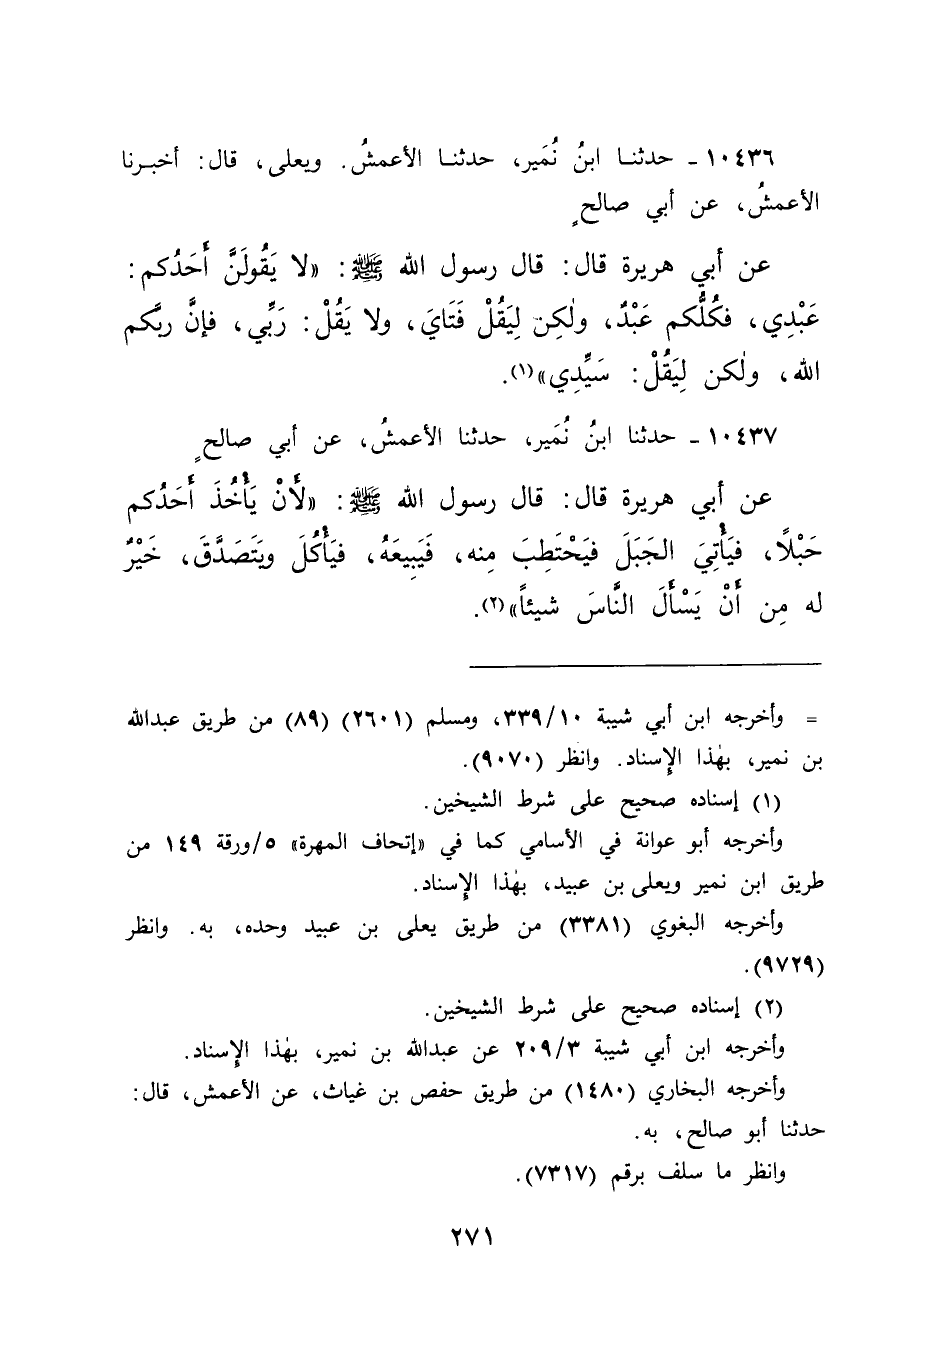 ١٠٤٣٦ - حدثنـا ابنُ نُمَير، حدثنـا الأعمشُ. ويعلى، قال: أخبـرنا
الأعمشُ، عن أبي صالحٍ
عن أبي هريرة قال: قال رسول الله ﷺ: «لا يَقُولَنَّ أَحَدُكم:
عَبْدِي، فكُلُّكم عَبْدٌ، ولٰكِن لِيَقُلْ فَتَايَ، ولا يَقُلْ: رَبِّي، فإنَّ ربَّكم
الله، ولٰكن لِيَقُلْ: سَيِّدِي»(١).
١٠٤٣٧ - حدثنا ابنُ نُمَير، حدثنا الأعمشُ، عن أبي صالحٍ
عن أبي هريرة قال: قال رسول الله ﷺ: «لَأَنْ يَأْخُذَ أَحَدُكم
حَبْلًا، فيَأْتِيَ الجَبَلَ فيَحْتَطِبَ مِنه، فَيَبِيعَهُ، فيَأْكُلَ ويَتَصَدَّقَ، خَيْرٌ
له مِن أَنْ يَسْأَلَ النَّاسَ شيئاً»(٢).
= وأخرجه ابن أبي شيبة ٣٣٩/١٠، ومسلم (٢٦٠١) (٨٩) من طريق عبدالله
بن نمير، بهٰذا الإسناد. وانظر (٩٠٧٠).
(١) إسناده صحيح على شرط الشيخين.
وأخرجه أبو عوانة في الأسامي كما في «إتحاف المهرة» ٥/ورقة ١٤٩ من
طريق ابن نمير ويعلى بن عبيد، بهٰذا الإسناد.
وأخرجه البغوي (٣٣٨١) من طريق يعلى بن عبيد وحده، به. وانظر
(٩٧٢٩).
(٢) إسناده صحيح على شرط الشيخين.
وأخرجه ابن أبي شيبة ٢٠٩/٣ عن عبدالله بن نمير، بهٰذا الإسناد.
وأخرجه البخاري (١٤٨٠) من طريق حفص بن غياث، عن الأعمش، قال:
حدثنا أبو صالح، به.
وانظر ما سلف برقم (٧٣١٧).
٢٧١